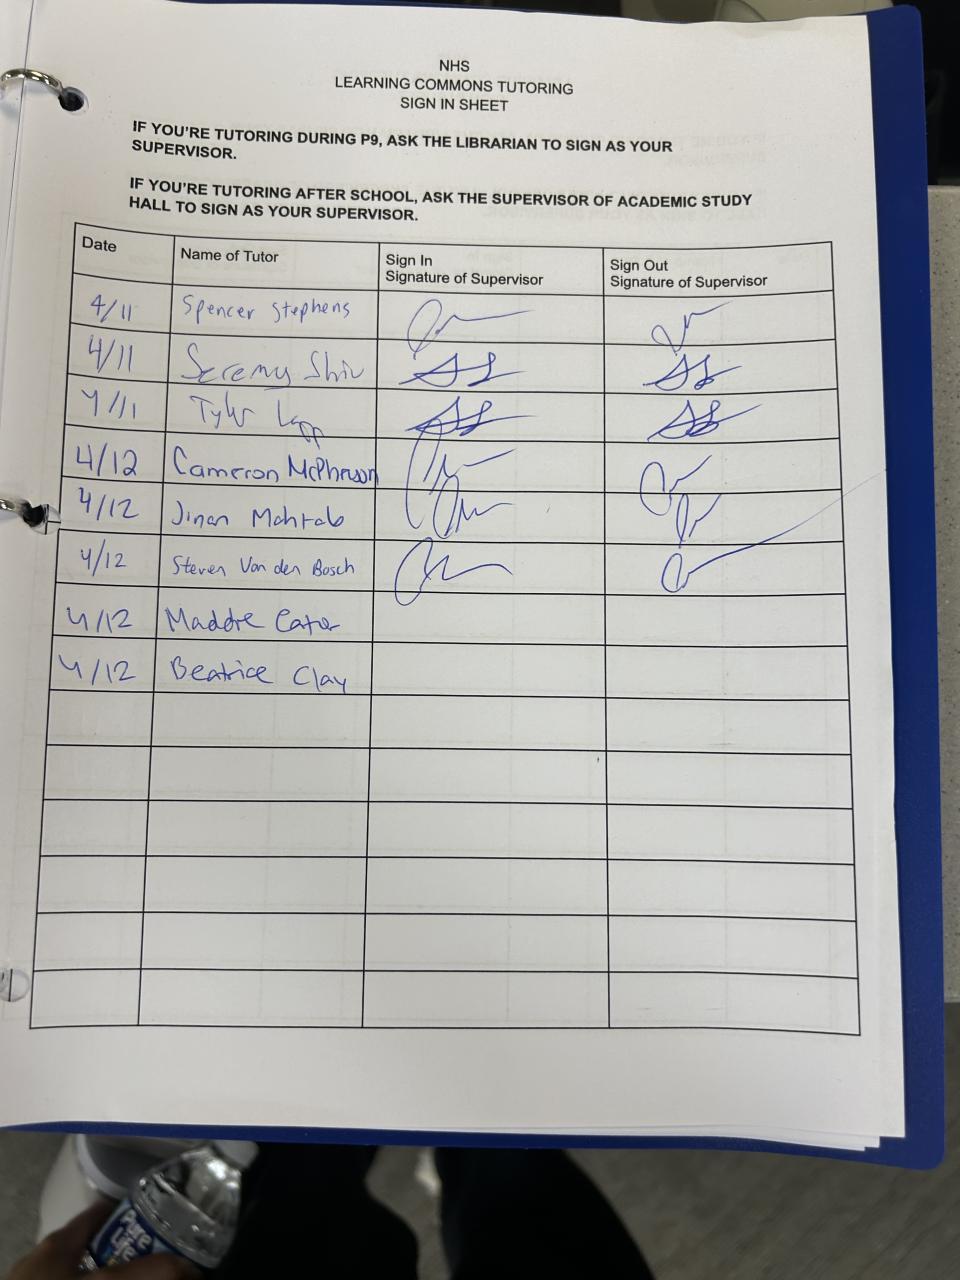 NHS
LEARNING COMMONS TUTORING
SIGN IN SHEET
IF YOU'RE TUTORING DURING P9, ASK THE LIBRARIAN TO SIGN AS YOUR
SUPERVISOR.
IF YOU'RE TUTORING AFTER SCHOOL, ASK THE SUPERVISOR OF ACADEMIC STUDY
HALL TO SIGN AS YOUR SUPERVISOR.
Date Name of Tutor Sign In Signature of Supervisor Sign Out Signature of Supervisor
4/11 Spencer Stephens
4/11 Jeremy Shiv
4/11 Tyler
4/12 Cameron McPherson
4/12 Jinan Mahtab
4/12 Steven Van den Bosch
4/12 Maddie
4/12 Beatrice Clay
Pure
Life